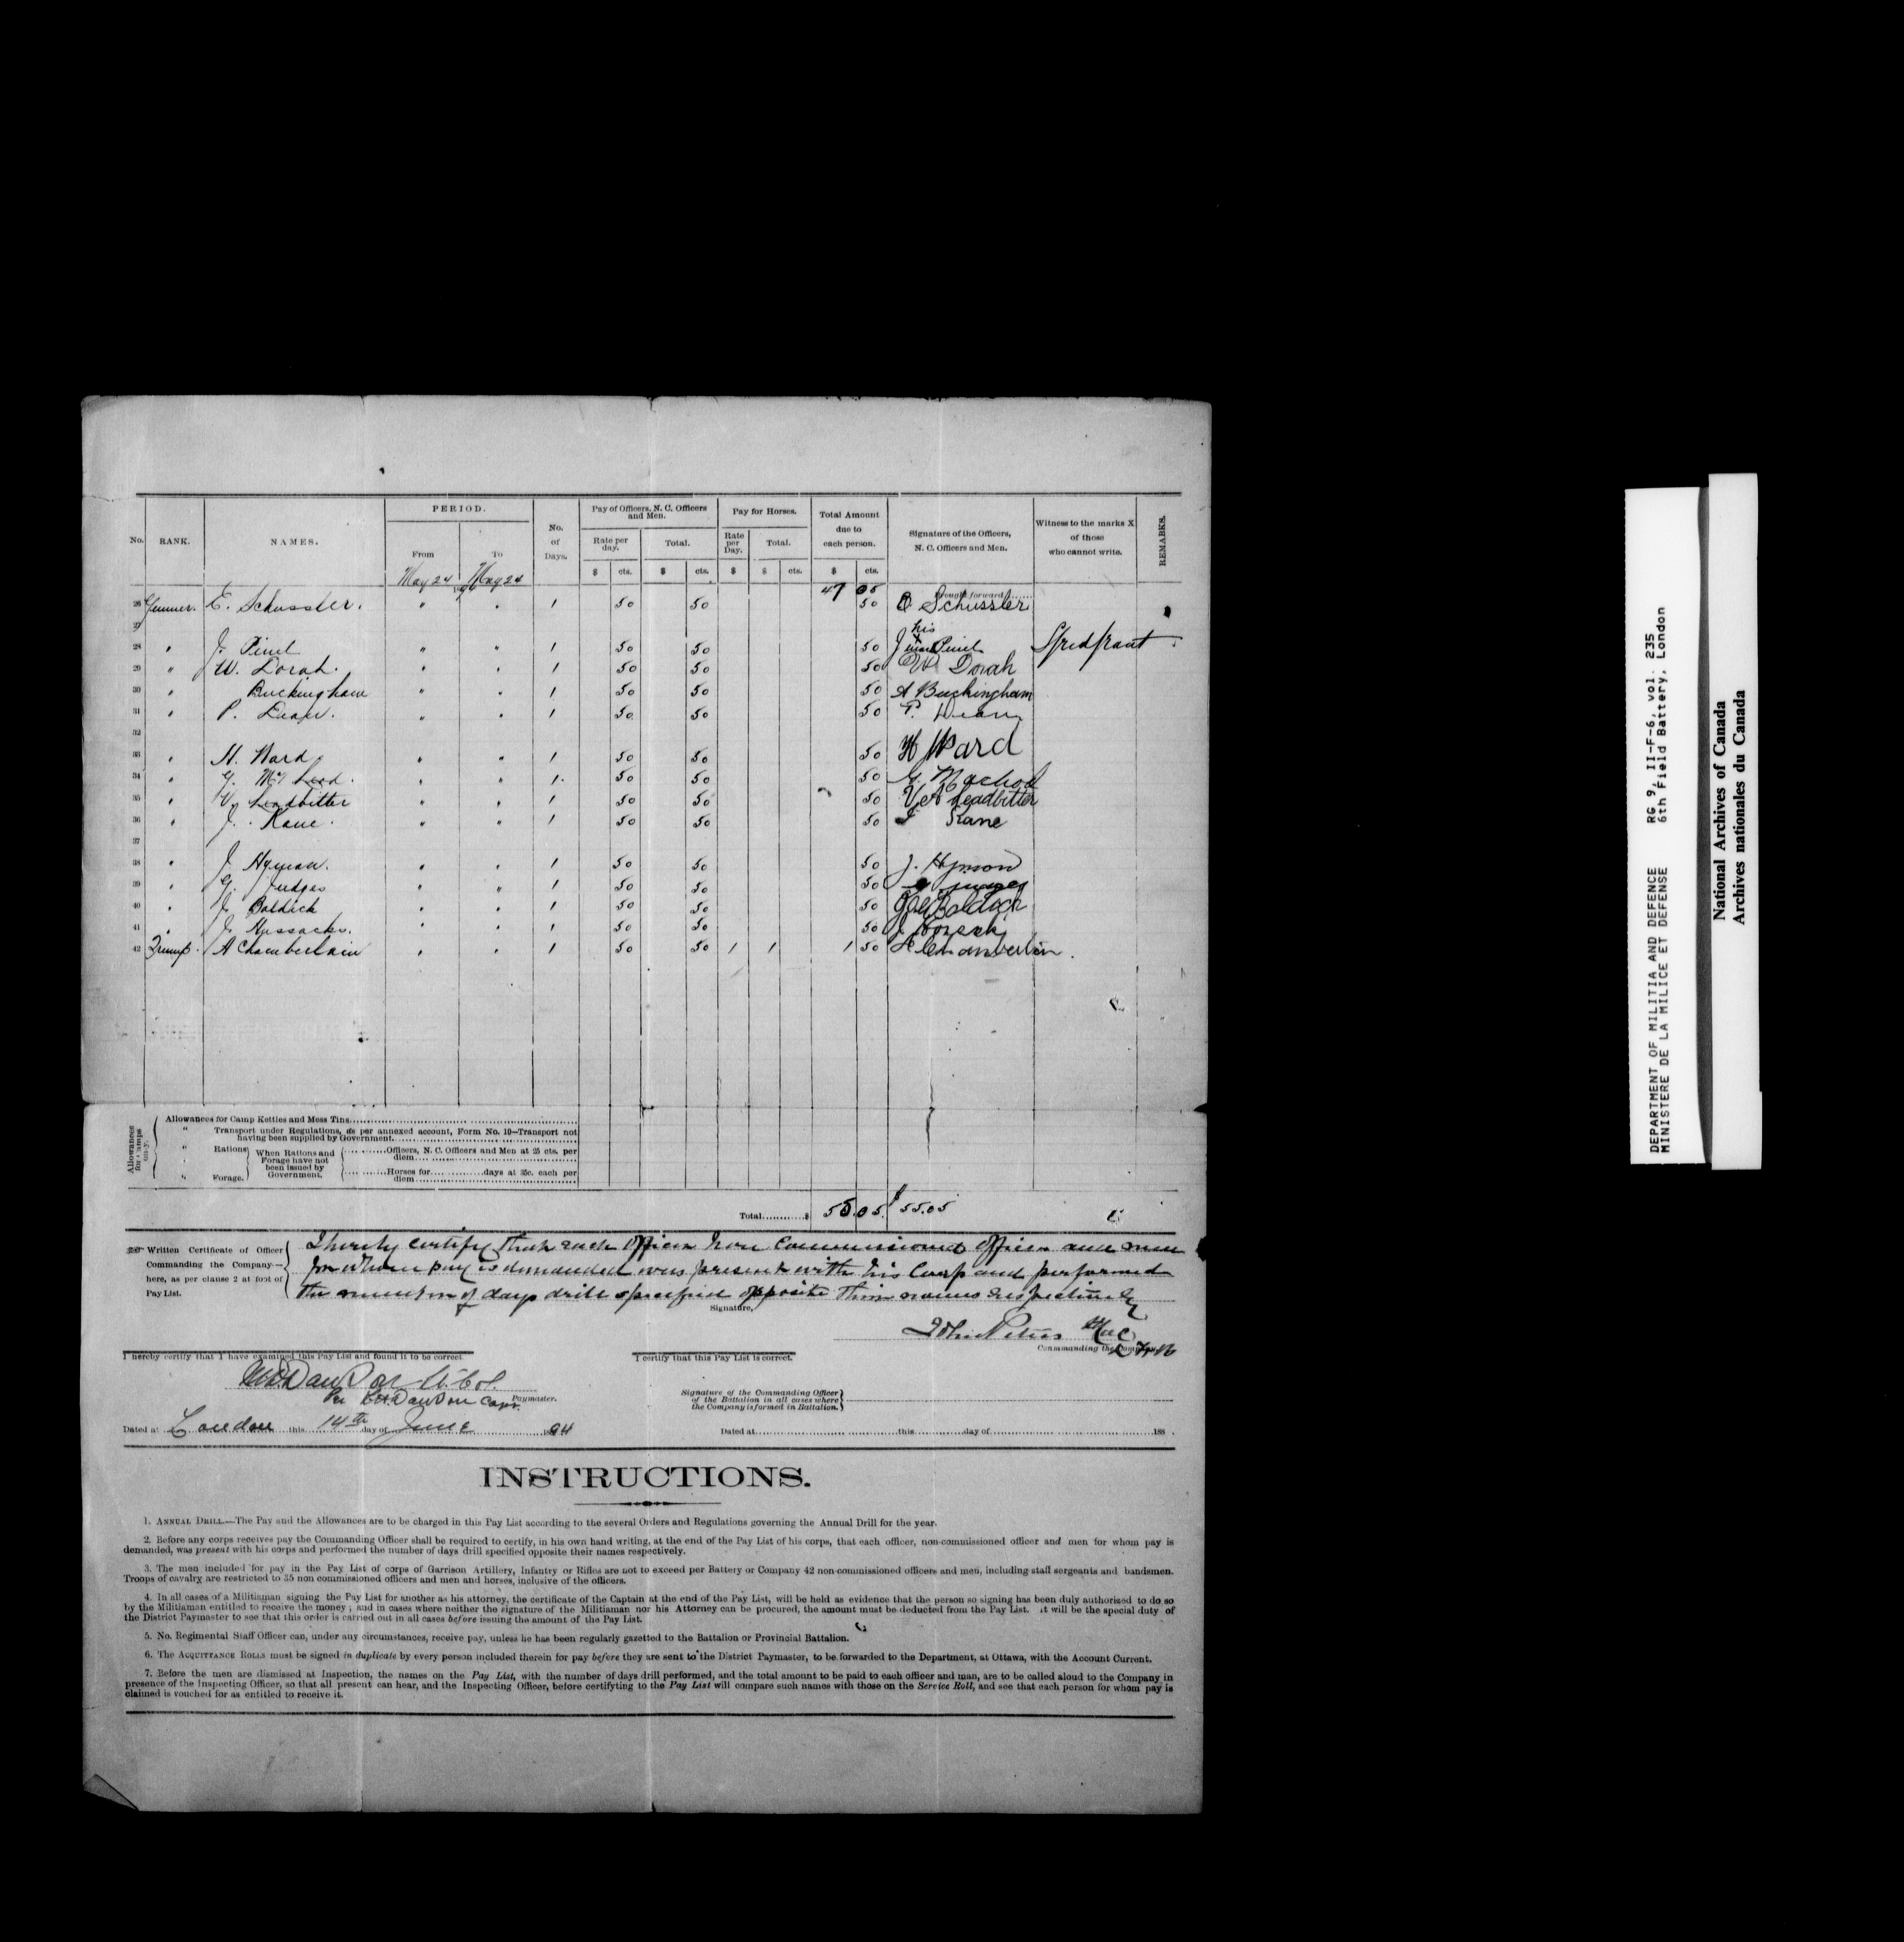 No. RANK. NAMES. PERIOD. No. of Days. Pay of Officers, N. C. Officers and Men. Pay for Horses. Total Amount due to each person. Signature of the Officers, N. C. Officers and Men. Witness to the marks X of those who cannot write. REMARKS.
From To Rate per day. Total. Rate per Day. Total.
$ cts. $ cts. $ $ cts. $ cts.
May 24 May 24
47 05 Brought forward......
26 Gunner. E. Schussler. " " 1 50 50 50 E Schussler
27
his
28 " J. Pinel " " 1 50 50 50 J mark Pinel
29 " W. Dorah. " " 1 50 50 50 W Dorah
30 " Buckingham " " 1 50 50 50 A Buckingham
31 " P. Dean. " " 1 50 50 50 P. Dean
32
33 " H. Ward " " 1 50 50 50 H Ward
34 " G. McLeod. " " 1 50 50 50 G. Macleod
35 " V. Leadbitter " " 1 50 50 50 V A Leadbitter
36 " J. Kane. " " 1 50 50 50 J Kane
37
38 " J. Hyman. " " 1 50 50 50 J. Hymon
39 " G. Judges " " 1 50 50 50 G Judges
40 " J. Baldick " " 1 50 50 50 Baldick
41 " J. " " 1 50 50 50 J
42 Trump. A Chamberlain " " 1 50 50 1 1 1 50 A Chamberlin.
Allowances for Camps only.
Allowances for Camp Kettles and Mess Tins
" Transport under Regulations, as per annexed account, Form No. 10—Transport not having been supplied by Government.
" Rations When Rations and Forage have not been issued by Government. Officers, N. C. Officers and Men at 25 cts. per diem
" Forage. Horses for............days at 35c. each per diem
Total............$ 55.05 $ 55.05
Written Certificate of Officer Commanding the Company—here, as per clause 2 at foot of Pay List.
I hereby certify that each Officer Non Commissioned officer and men
for whom pay is demanded was present with his Corp and performed
the number of days drill specified opposite their names respectively
Signature,
John Peters
Commanding the Company.
I hereby certify that I have examined this Pay List and found it to be correct.
I certify that this Pay List is correct.
Dawson Lt. Col.
Per Dawson Capt. Paymaster.
Signature of the Commanding Officer of the Battalion in all cases where the Company is formed in Battalion.
Dated at London this 14th day of June 1894
Dated at............this............day of............188 .
INSTRUCTIONS.
1. ANNUAL DRILL.—The Pay and the Allowances are to be charged in this Pay List according to the several Orders and Regulations governing the Annual Drill for the year.
2. Before any corps receives pay the Commanding Officer shall be required to certify, in his own hand writing, at the end of the Pay List of his corps, that each officer, non-commissioned officer and men for whom pay is
demanded, was present with his corps and performed the number of days drill specified opposite their names respectively.
3. The men included for pay in the Pay List of corps of Garrison Artillery, Infantry or Rifles are not to exceed per Battery or Company 42 non-commissioned officers and men, including staff sergeants and bandsmen.
Troops of cavalry are restricted to 35 non commissioned officers and men and horses, inclusive of the officers.
4. In all cases of a Militiaman signing the Pay List for another as his attorney, the certificate of the Captain at the end of the Pay List, will be held as evidence that the person so signing has been duly authorized to do so
by the Militiaman entitled to receive the money; and in cases where neither the signature of the Militiaman nor his Attorney can be procured, the amount must be deducted from the Pay List. It will be the special duty of
the District Paymaster to see that this order is carried out in all cases before issuing the amount of the Pay List.
5. No. Regimental Staff Officer can, under any circumstances, receive pay, unless he has been regularly gazetted to the Battalion or Provincial Battalion.
6. The ACQUITTANCE ROLLS must be signed in duplicate by every person included therein for pay before they are sent to the District Paymaster, to be forwarded to the Department, at Ottawa, with the Account Current.
7. Before the men are dismissed at Inspection, the names on the Pay List, with the number of days drill performed, and the total amount to be paid to each officer and man, are to be called aloud to the Company in
presence of the Inspecting Officer, so that all present can hear, and the Inspecting Officer, before certifying to the Pay List will compare such names with those on the Service Roll, and see that each person for whom pay is
claimed is vouched for as entitled to receive it.
DEPARTMENT OF MILITIA AND DEFENCE RG 9, II-F-6, vol. 235
MINISTERE DE LA MILICE ET DEFENSE 6th Field Battery, London
National Archives of Canada
Archives nationales du Canada